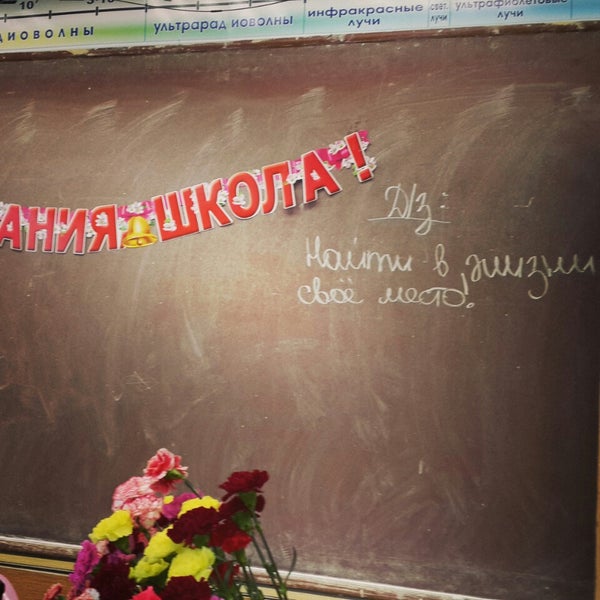 10⁷
ДИОВОЛНЫ
ультрарад иоволны
инфракрасные
лучи
свет.
лучи
ультрафиолетовые
лучи
АНИЯ ШКОЛА!
Д/З:
Найти в жизни
своё место.